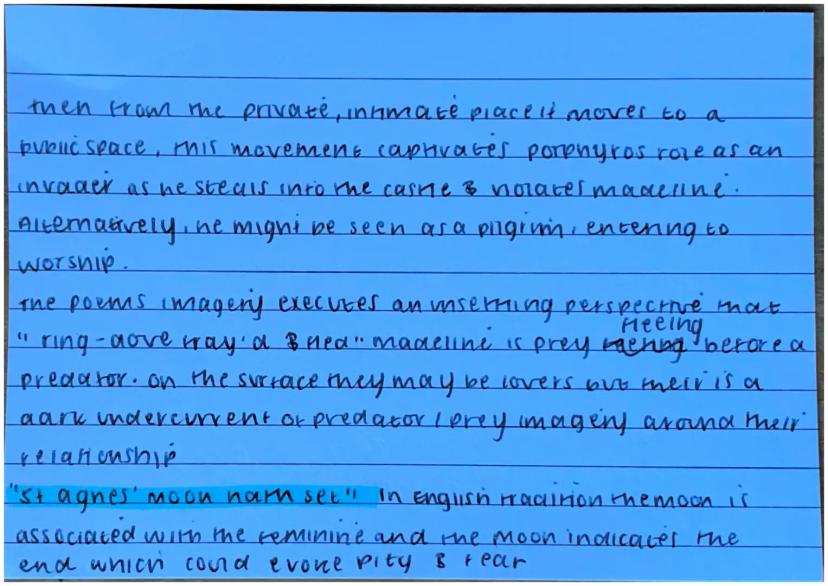 then from the private, intimate place it moves to a
public space, this movement captivates porphyros role as an
invader as he steals into the castle & violates madeline.
Alternatively, he might be seen as a pilgrim, entering to
worship.
The poems imagery executes an unsettling perspective that
fleeing
"ring-dove fray'd & fled" madeline is prey before a
predator. On the surface they may be lovers but their is a
dark undercurrent of predator / prey imagery around their
relationship
"St agnes' moon hath set" In English tradition the moon is
associated with the feminine and the moon indicates the
end which could evoke pity & fear